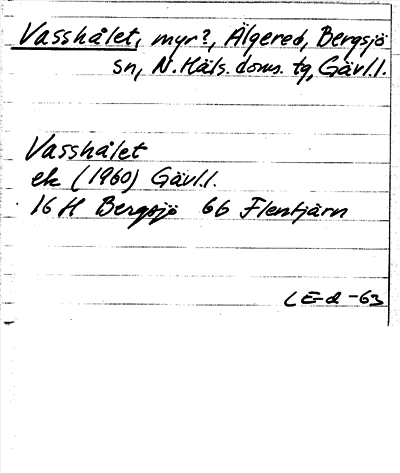 Vasshålet, myr?, Älgered, Bergsjö
sn, N. Häls. doms. tg, Gävl.l.
Vasshålet
ek (1960) Gävl.l.
16 H Bergsjö 6b Flentjärn
CEd -63